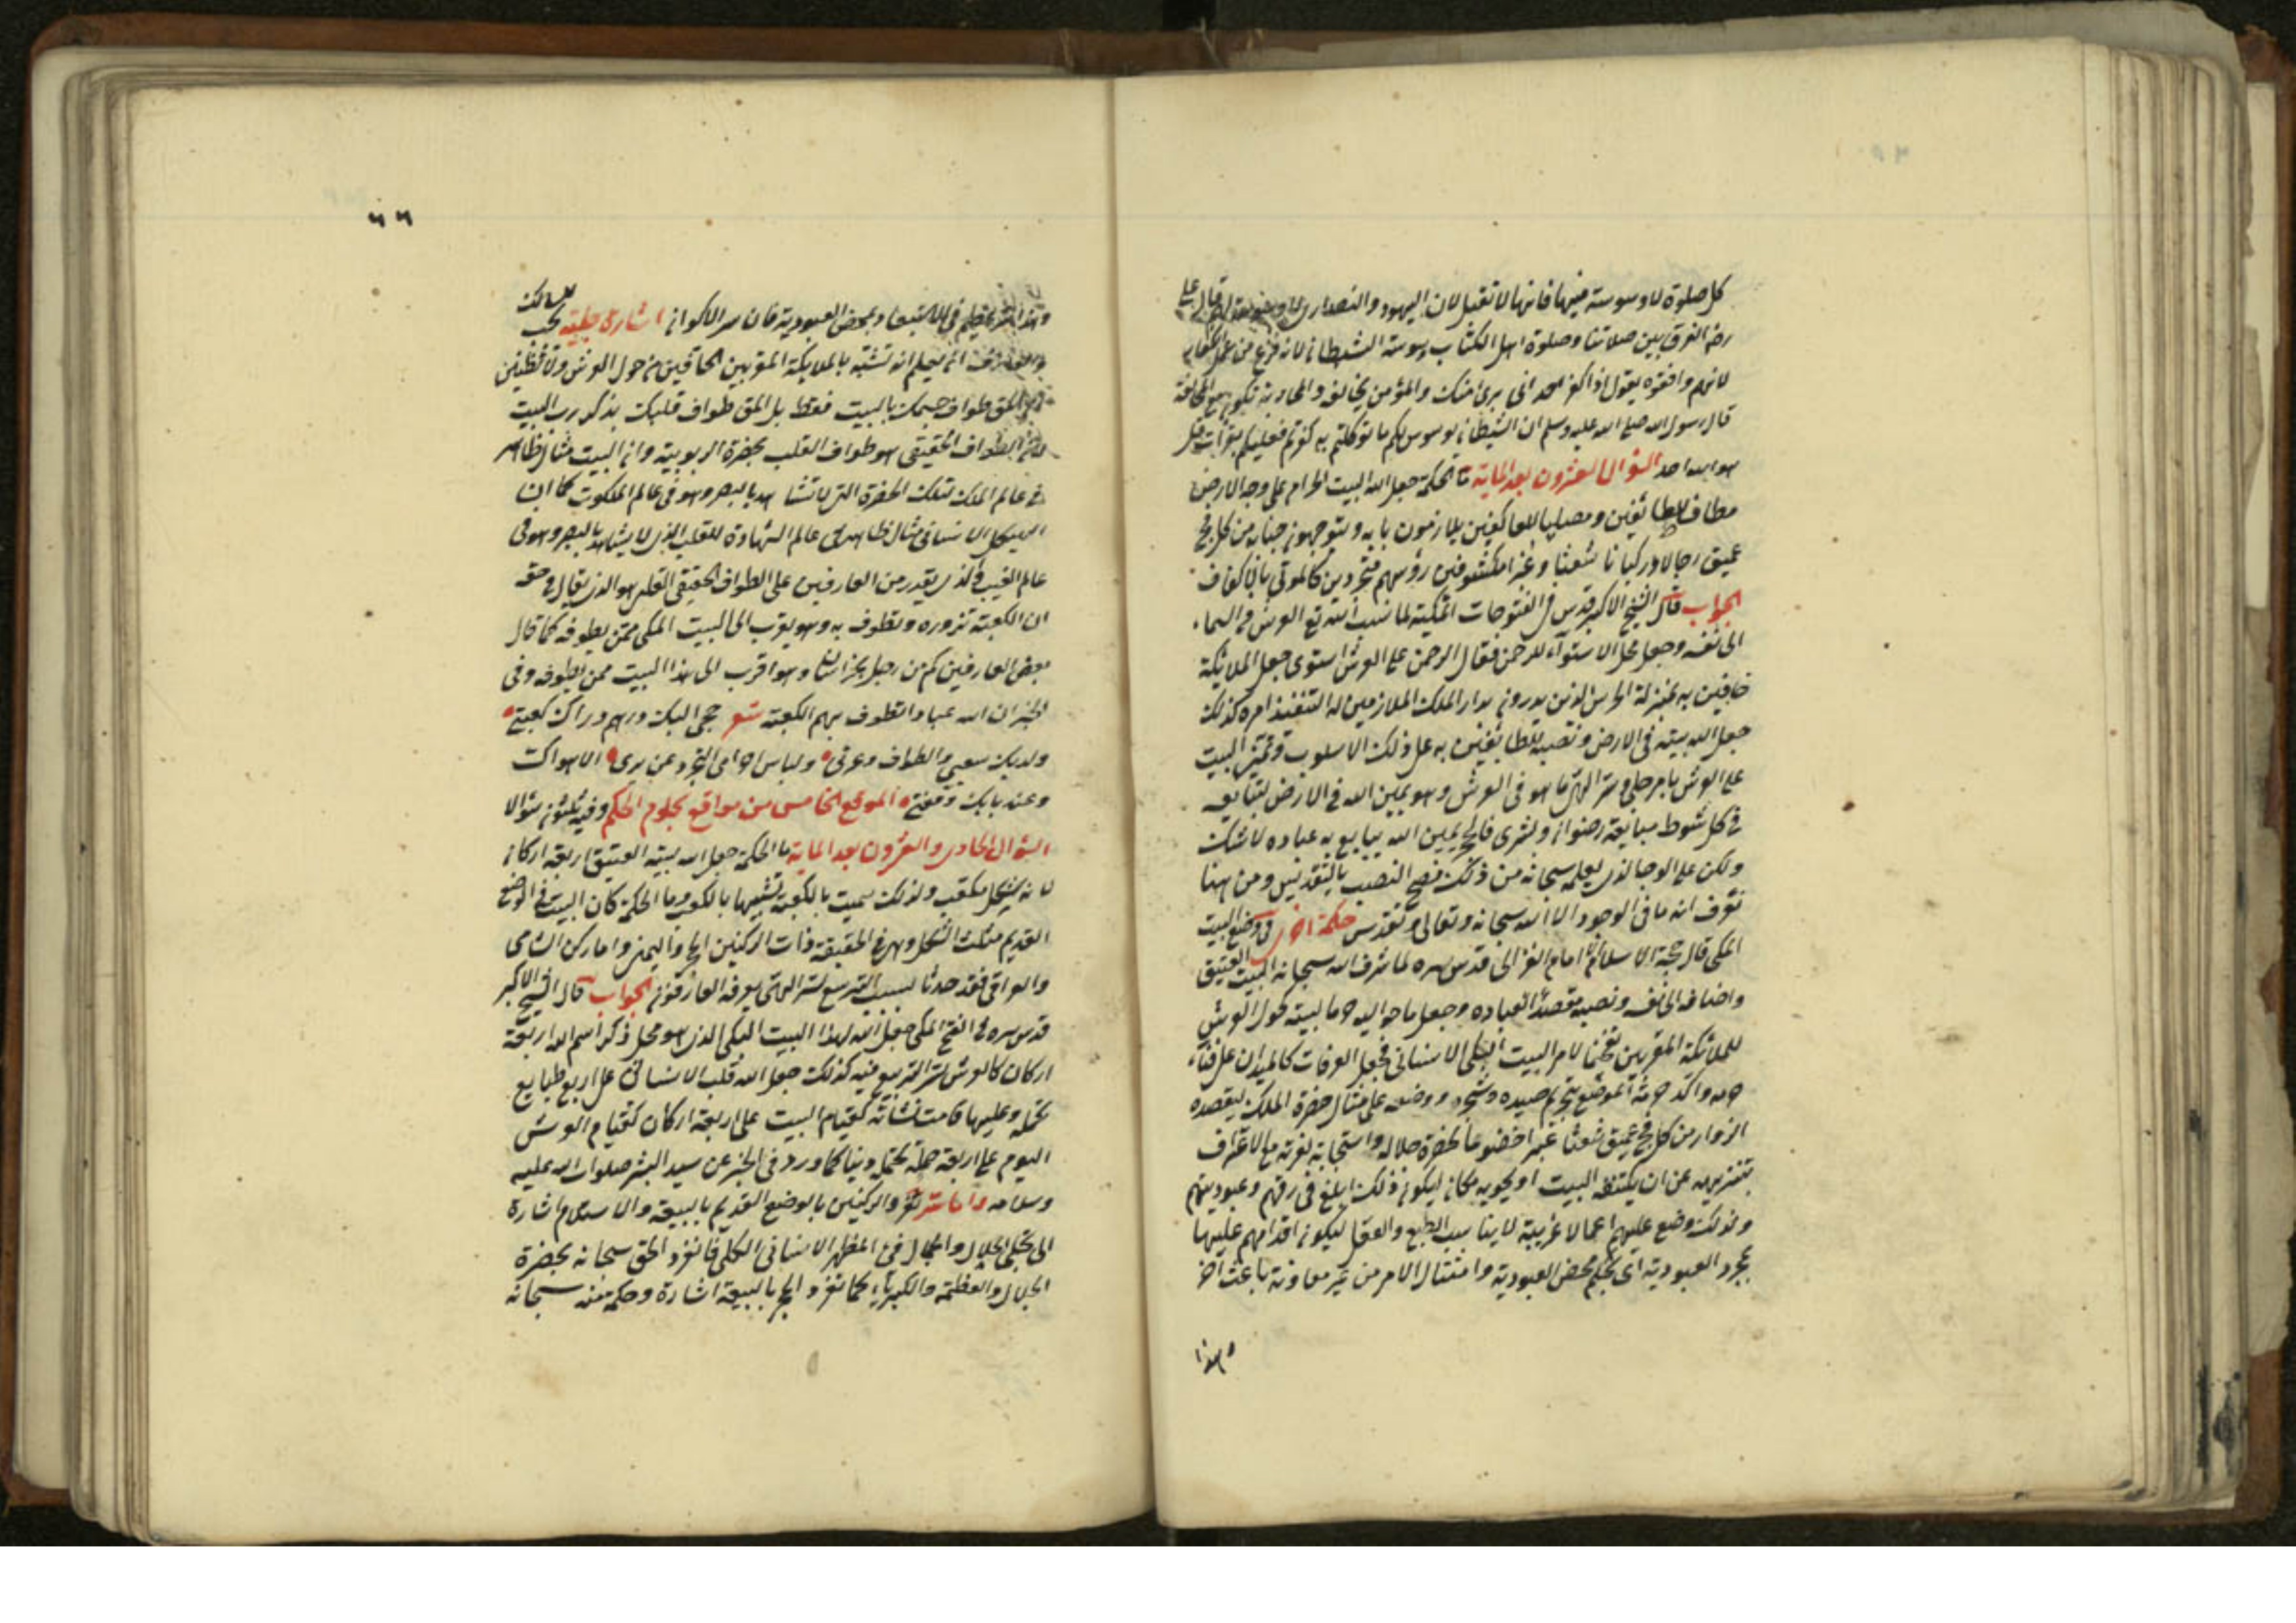 كل صلوة لا وسوسة فيها فانها لا تقبل لان اليهود والنصارى لا وسوسة لهم قال على
رضه الفرق بين صلاتنا وصلوة اهل الكتاب وسوسة الشيطان لانه فرغ من عمل الكفار
لانهم وافقوه يقول اذا كفر احد انى برئ منك والمؤمن يخالفه والمحاربة تكون مع المخالفة
قال رسول الله صلى الله عليه وسلم ان الشيطان يوسوس لكم ما لو تكلتم به كفرتم فعليكم بقراءت قل
هو الله احد السؤال العشرون بعد الماية ما الحكمة جعل الله البيت الحرام على وجه الارض
مطاف للطائفين ومصليا للعاكفين يلازمون بابه ويتوجهون جنابه من كل فج
عميق رجالا وركبانا شعثا وغبرا مكشوفين رؤسهم متجردين كالموتى بالاكفان
الجواب قال الشيخ الاكبر قدس فى الفتوحات المكية لما نسب الله تع العرش فى السماء
الى نفسه وجعل محل الاستوآء للرحمن فقال الرحمن على العرش استوى جعل الملائكة
حافين به بمنزلة الحرس الذين يدرون بدار الملك الملازمين له التنفيذ امره كذلك
جعل الله بيته فى الارض ونصبه للطائفين به على ذلك الاسلوب وتميز البيت
على العرش بامر جلى وسر الهى ما هو فى العرش وهو يمين الله فى الارض لتبايعه
فى كل شوط مبايعة رضوان وبشرى فالحجر يمين الله يبايع به عباده لا شك
ولكن على الوجه الذى يعلمه سبحانه من ذلك فصح النصب بالتقديس ومن هنا
تعرف انه ما فى الوجود الا الله سبحانه وتعالى وتقدس حكمة اخرى فى وضع البيت
المكى قال حجة الاسلام امام الغزالى قدس سره لما شرف الله سبحانه البيت العتيق
واضافه الى نفسه ونصبه مقصدا لعباده وجعل ما حواليه حرما لبيته كحول العرش
للملائكة المقربين تفخيما لامر البيت البكى الانسانى فجعل العرفات كالميدان على فناء
حرمه واكد حرمة الموضع بتحريم صيده وشجره ووضعه على مثال حضرة الملك ليقصده
الزوار من كل فج عميق شعثا غبرا خضوعا لحضرة جلاله واستجابة لعزته مع الاعتراف
بتنزيهه عن ان يكتنفه البيت او يحويه مكان ليكون ذلك ابلغ فى رقهم وعبوديتهم
ولذلك وضع عليهم اعمالا غريبة لا يناسب الطبع والعقل ليكون اقدامهم عليها
بمجرد العبودية اى بحكم محض العبودية وامتثال الامر من غير معاونة باعث اخر
وهذا
٦٦
وهذا عظيم فى الاستبعاد بمحض العبودية فان سر الاكوان اشارة جلية يجب للسالك
انه يعلم انه تشبه بالملايكة المقربين الحافين من حول العرش ولا تظنن
ان الحق طواف جسمك بالبيت فقط بل الحق طواف قلبك بذكر رب البيت
الطواف الحقيقى هو طواف القلب بحضرة الربوبية وان البيت مثال ظاهر
فى عالم الملك لتلك الحضرة التى لا تشاهد بالبصر وهو فى عالم الملكوت كما ان
الهيكل الانسانى مثال ظاهر فى عالم الشهادة للقلب الذى لا يشاهد بالبصر وهو فى
عالم الغيب فالذى يقدر من العارفين على الطواف الحقيقى القلبى هو الذى يقال فى حقه
ان الكعبة تزوره وتطوف به وهو يقرب الى البيت المكى ممن يطوفه كما قال
بعض العارفين كم من رجل بخراسان وهو اقرب الى هذا البيت ممن يطوفه وفى
الخبر ان لله عبادا تطوف بهم الكعبة شعر حجى اليك ورهم وراك كعبتى
ولديك سعيى والطواف وعرفى ولباس احرامى التجرد عن سرى الا هواك
وعند بابك وقفتى الموقع الخامس من مواقع نجلوم الحكم وفيه ثلثون سؤالا
السؤال الحادى والعشرون بعد الماية ما الحكمة جعل الله بيته العتيق اربعة اركان
لانه بشكل مكعب ولذلك سميت بالكعبة تشبيها بالكعب وما الحكمة كان البيت فى الوضع
القديم مثلث الشكل وهى فى الحقيقة ذات الركنين الحجر واليمنى واما ركن الشامى
والعراقى فقد حدثا لسبب التربيع لسر الهى يعرفه العارفون الجواب قال الشيخ الاكبر
قدس سره فى الفتح المكى جعل الله لهذا البيت البكى الذى هو محل ذكر اسم الله اربعة
اركان كالعرش لسر التربيع فيه كذلك جعل الله قلب الانسانى على اربع طبايع
تحمله وعليها قامت نشأته كقيام البيت على اربعة اركان كقيام العرش
اليوم على اربعة حملة تحتمل دينا كما ورد فى الخبر عن سيد البشر صلوات الله عليه
وسلامه واما سر تفرد الركنين بالوضع القديم بالبيعة والاستلام اشارة
الى تجلى الجلال والجمال فى المظهر الانسانى الكلى فانفرد الحق سبحانه بحضرة
الجلال والعظمة والكبرياء كما تفرد الحجر بالبيعة اشارة وحكمة منه سبحانه